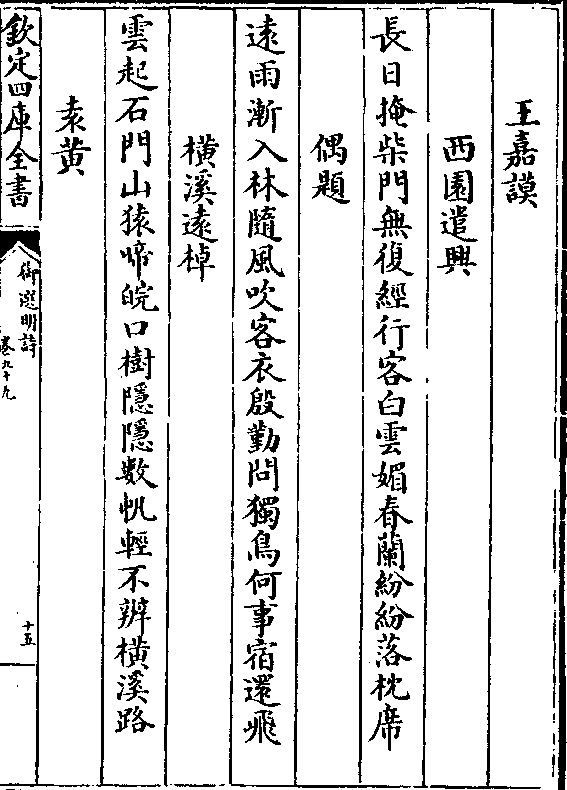 王嘉謨
西園遣興
長日掩柴門無復經行客白雲媚春蘭紛紛落枕席
偶題
遠雨漸入林隨風吹客衣殷勤問獨鳥何事宿還飛
橫溪遠棹
雲起石門山猿啼皖口樹隱隱數帆輕不辨橫溪路
袁黃
欽定四庫全書
御選明詩
卷九十九
十五